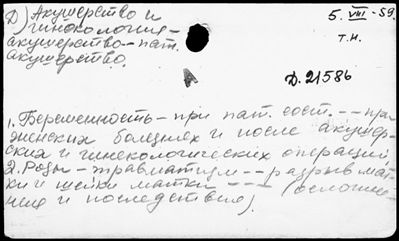 Д) Акушерство и
гинекология -
акушерство -- пат.
акушерство.
5. VIII - 59.
Т.Н.
Д. 21586
1. Беременность - при пат. сост. -- при
женских болезнях и после акушер-
ских и гинекологических операций,
2. Роды - травматизм -- разрыв мат-
ки и шейки матки --- (осложне-
ния и последствия).